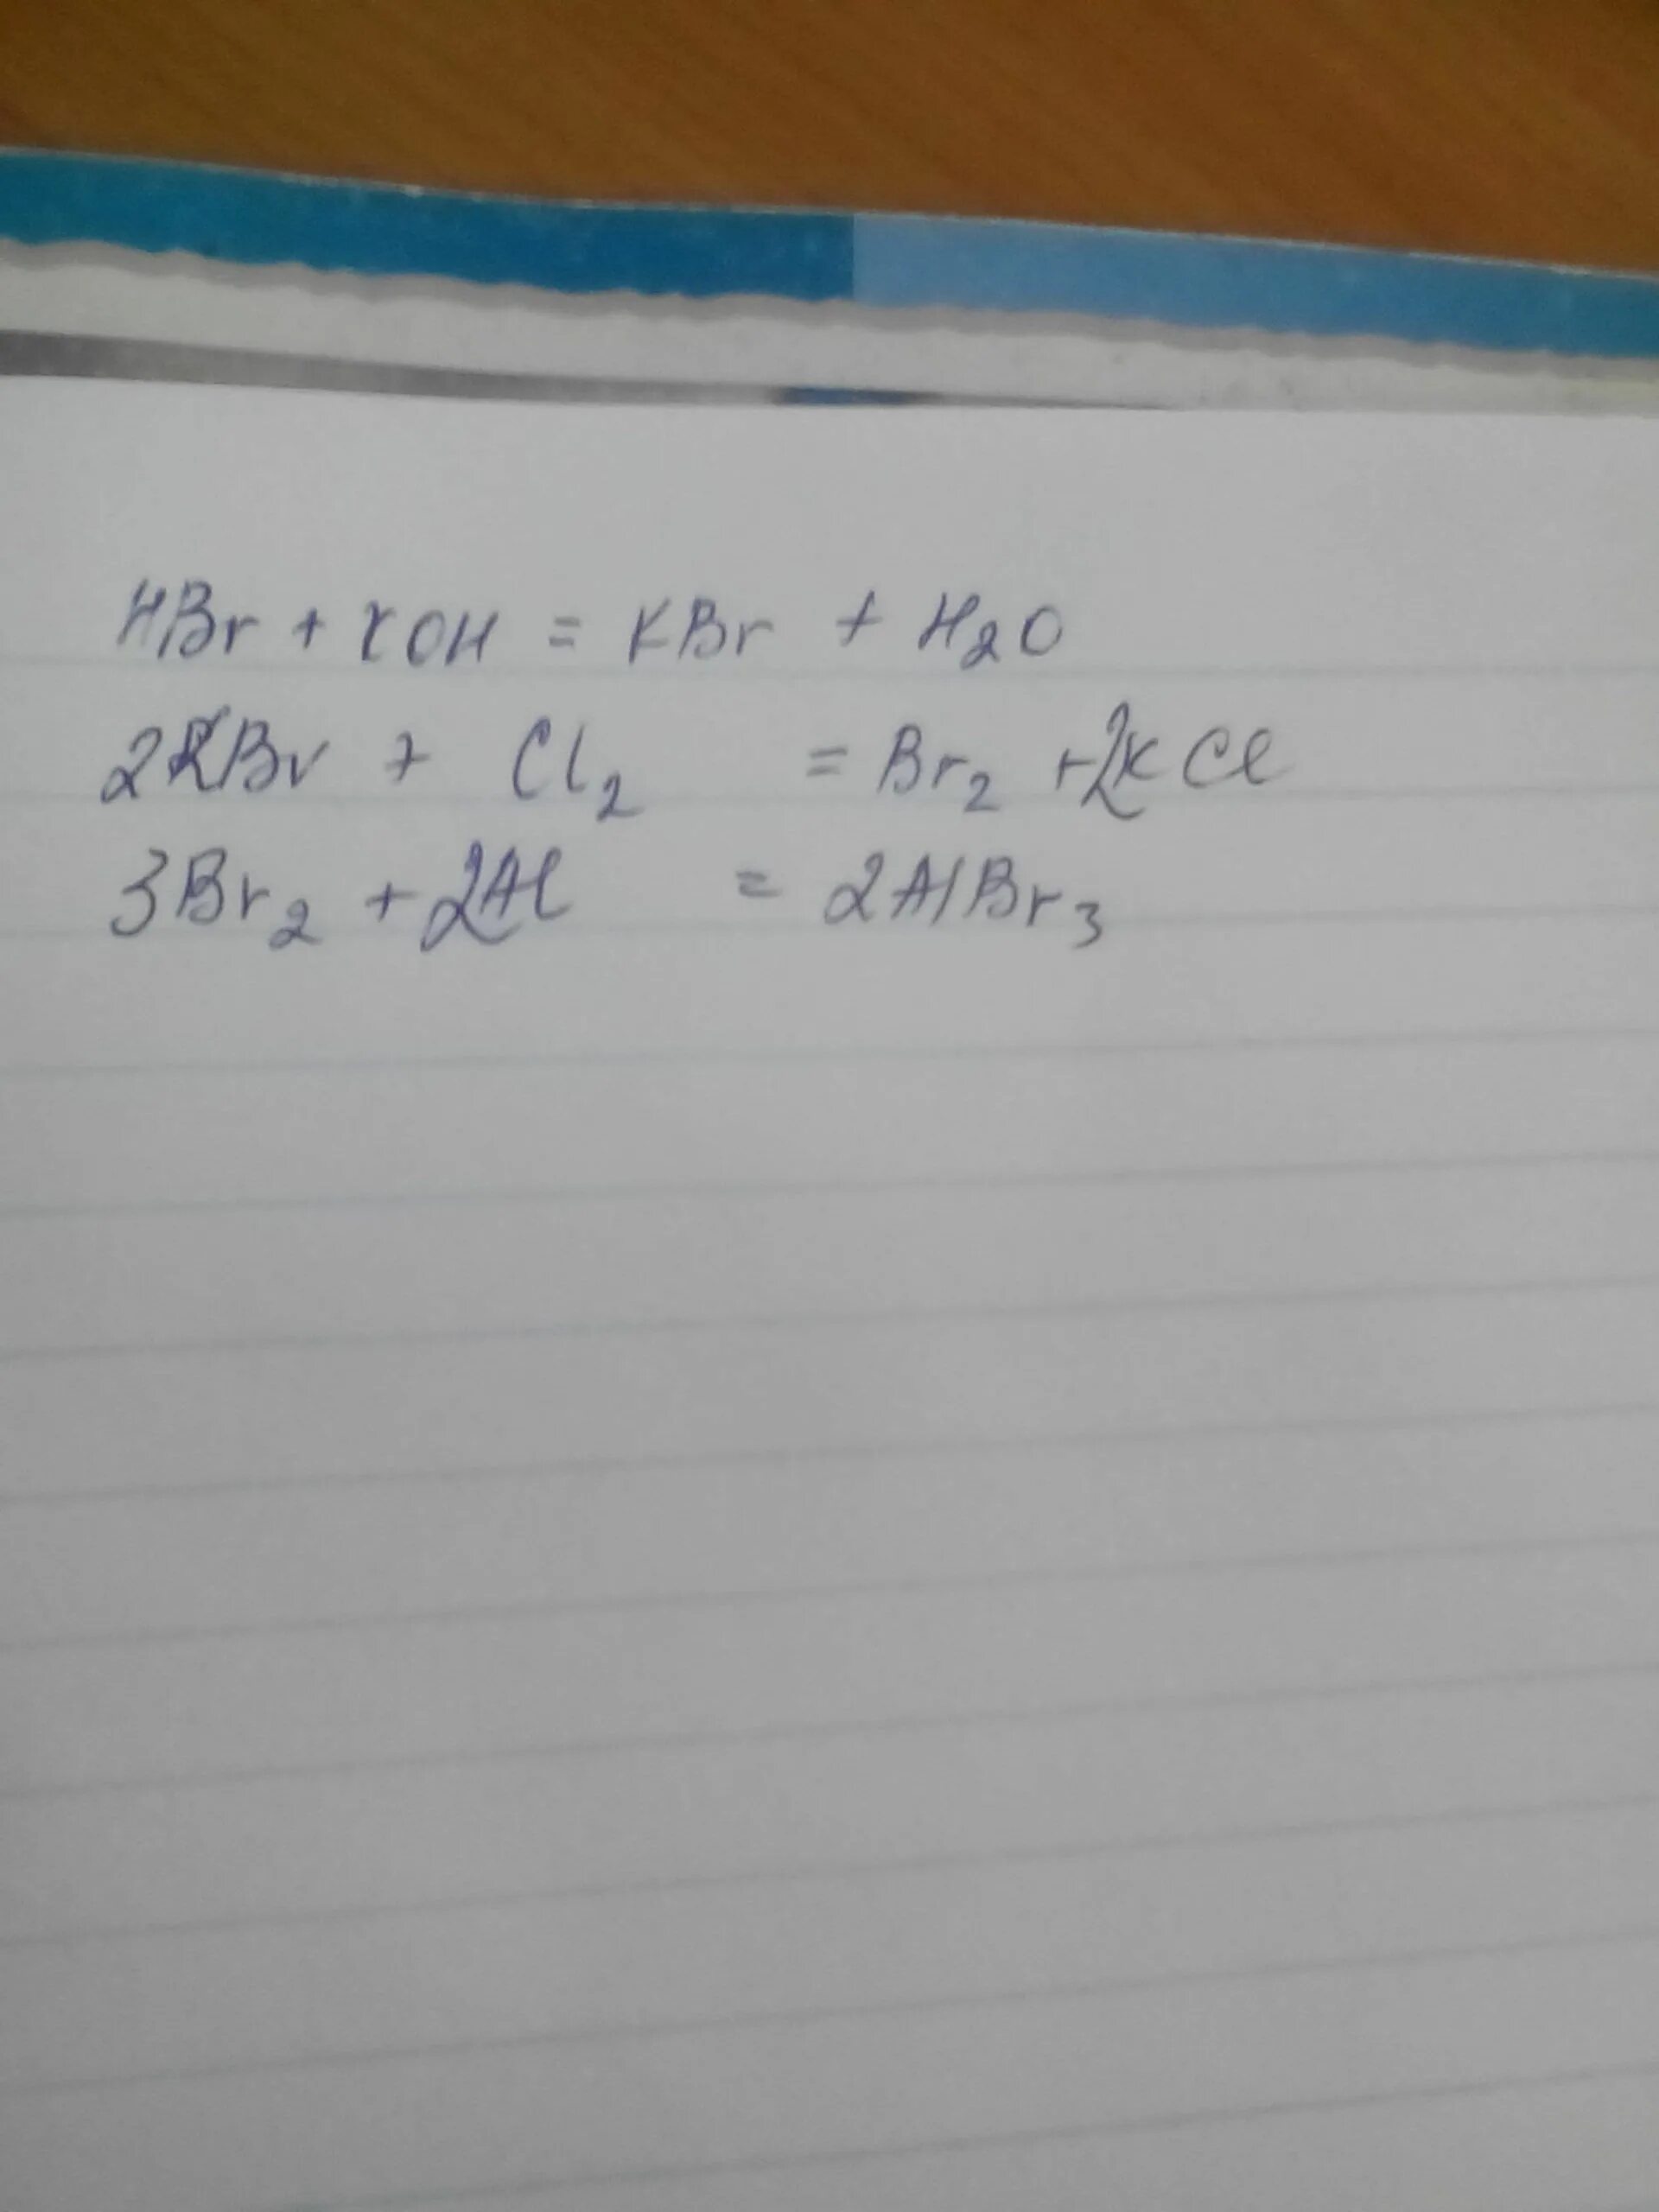 HBr + KOH = KBr + H₂O
2KBr + Cl₂ = Br₂ + 2KCl
3Br₂ + 2Al = 2AlBr₃